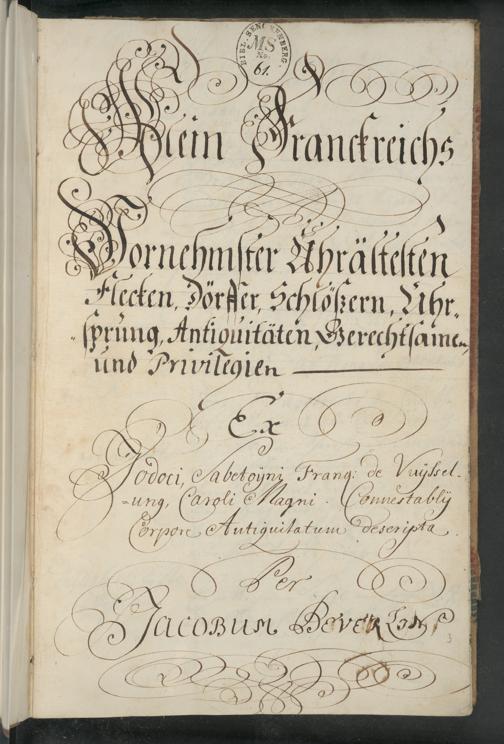 BIBL. SENCKENBERG.
MS
No.
61.
Klein Franckreichs
Vornehmster Uhrältesten
Flecken, Dörffer, Schlößern, Uhr-
sprung, Antiquitäten, Gerechtsamen,
und Privilegien
Ex
Jodoci, Sabetoÿni Franq: de Vuÿssel-
-ung, Caroli Magni. Connestablÿ
Corpore Antiquitatum descripta
Per
Jacobum